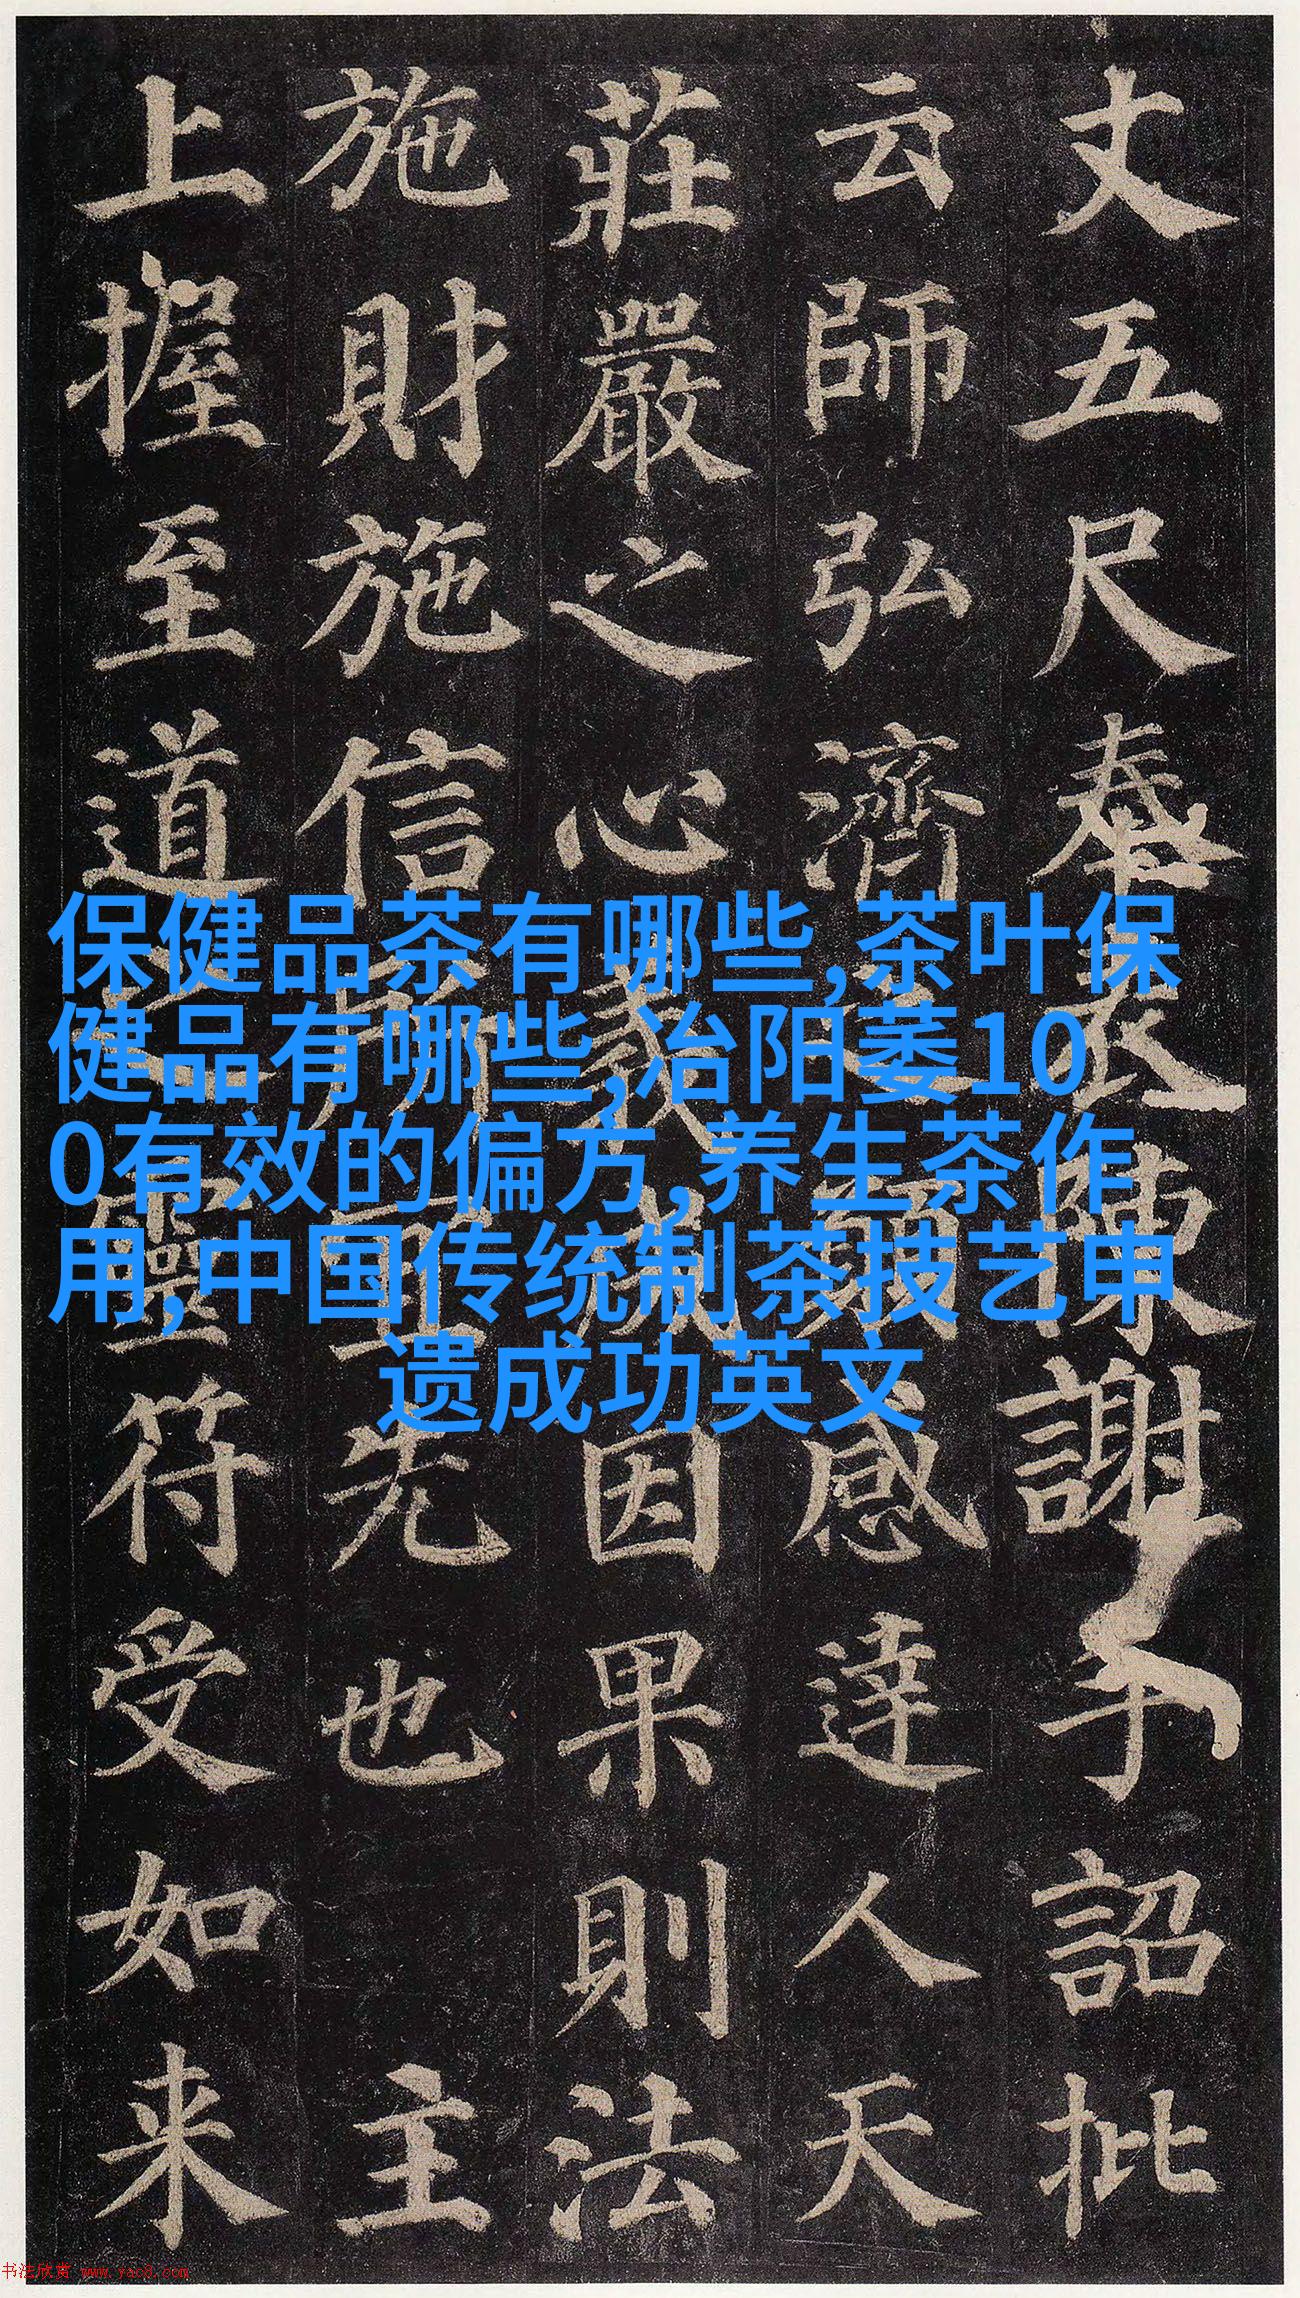 丈五尺奉表陳謝手詔批
云師弘濟之願感達人天
莊嚴之心義成因果則法
施財施信所宜先也 主
上握至道之靈符受如来
保健品茶有哪些,茶叶保
健品有哪些,冶阳萎10
0有效的偏方,养生茶作
用,中国传统制茶技艺申
遗成功英文
书法欣赏 www.yac8.com